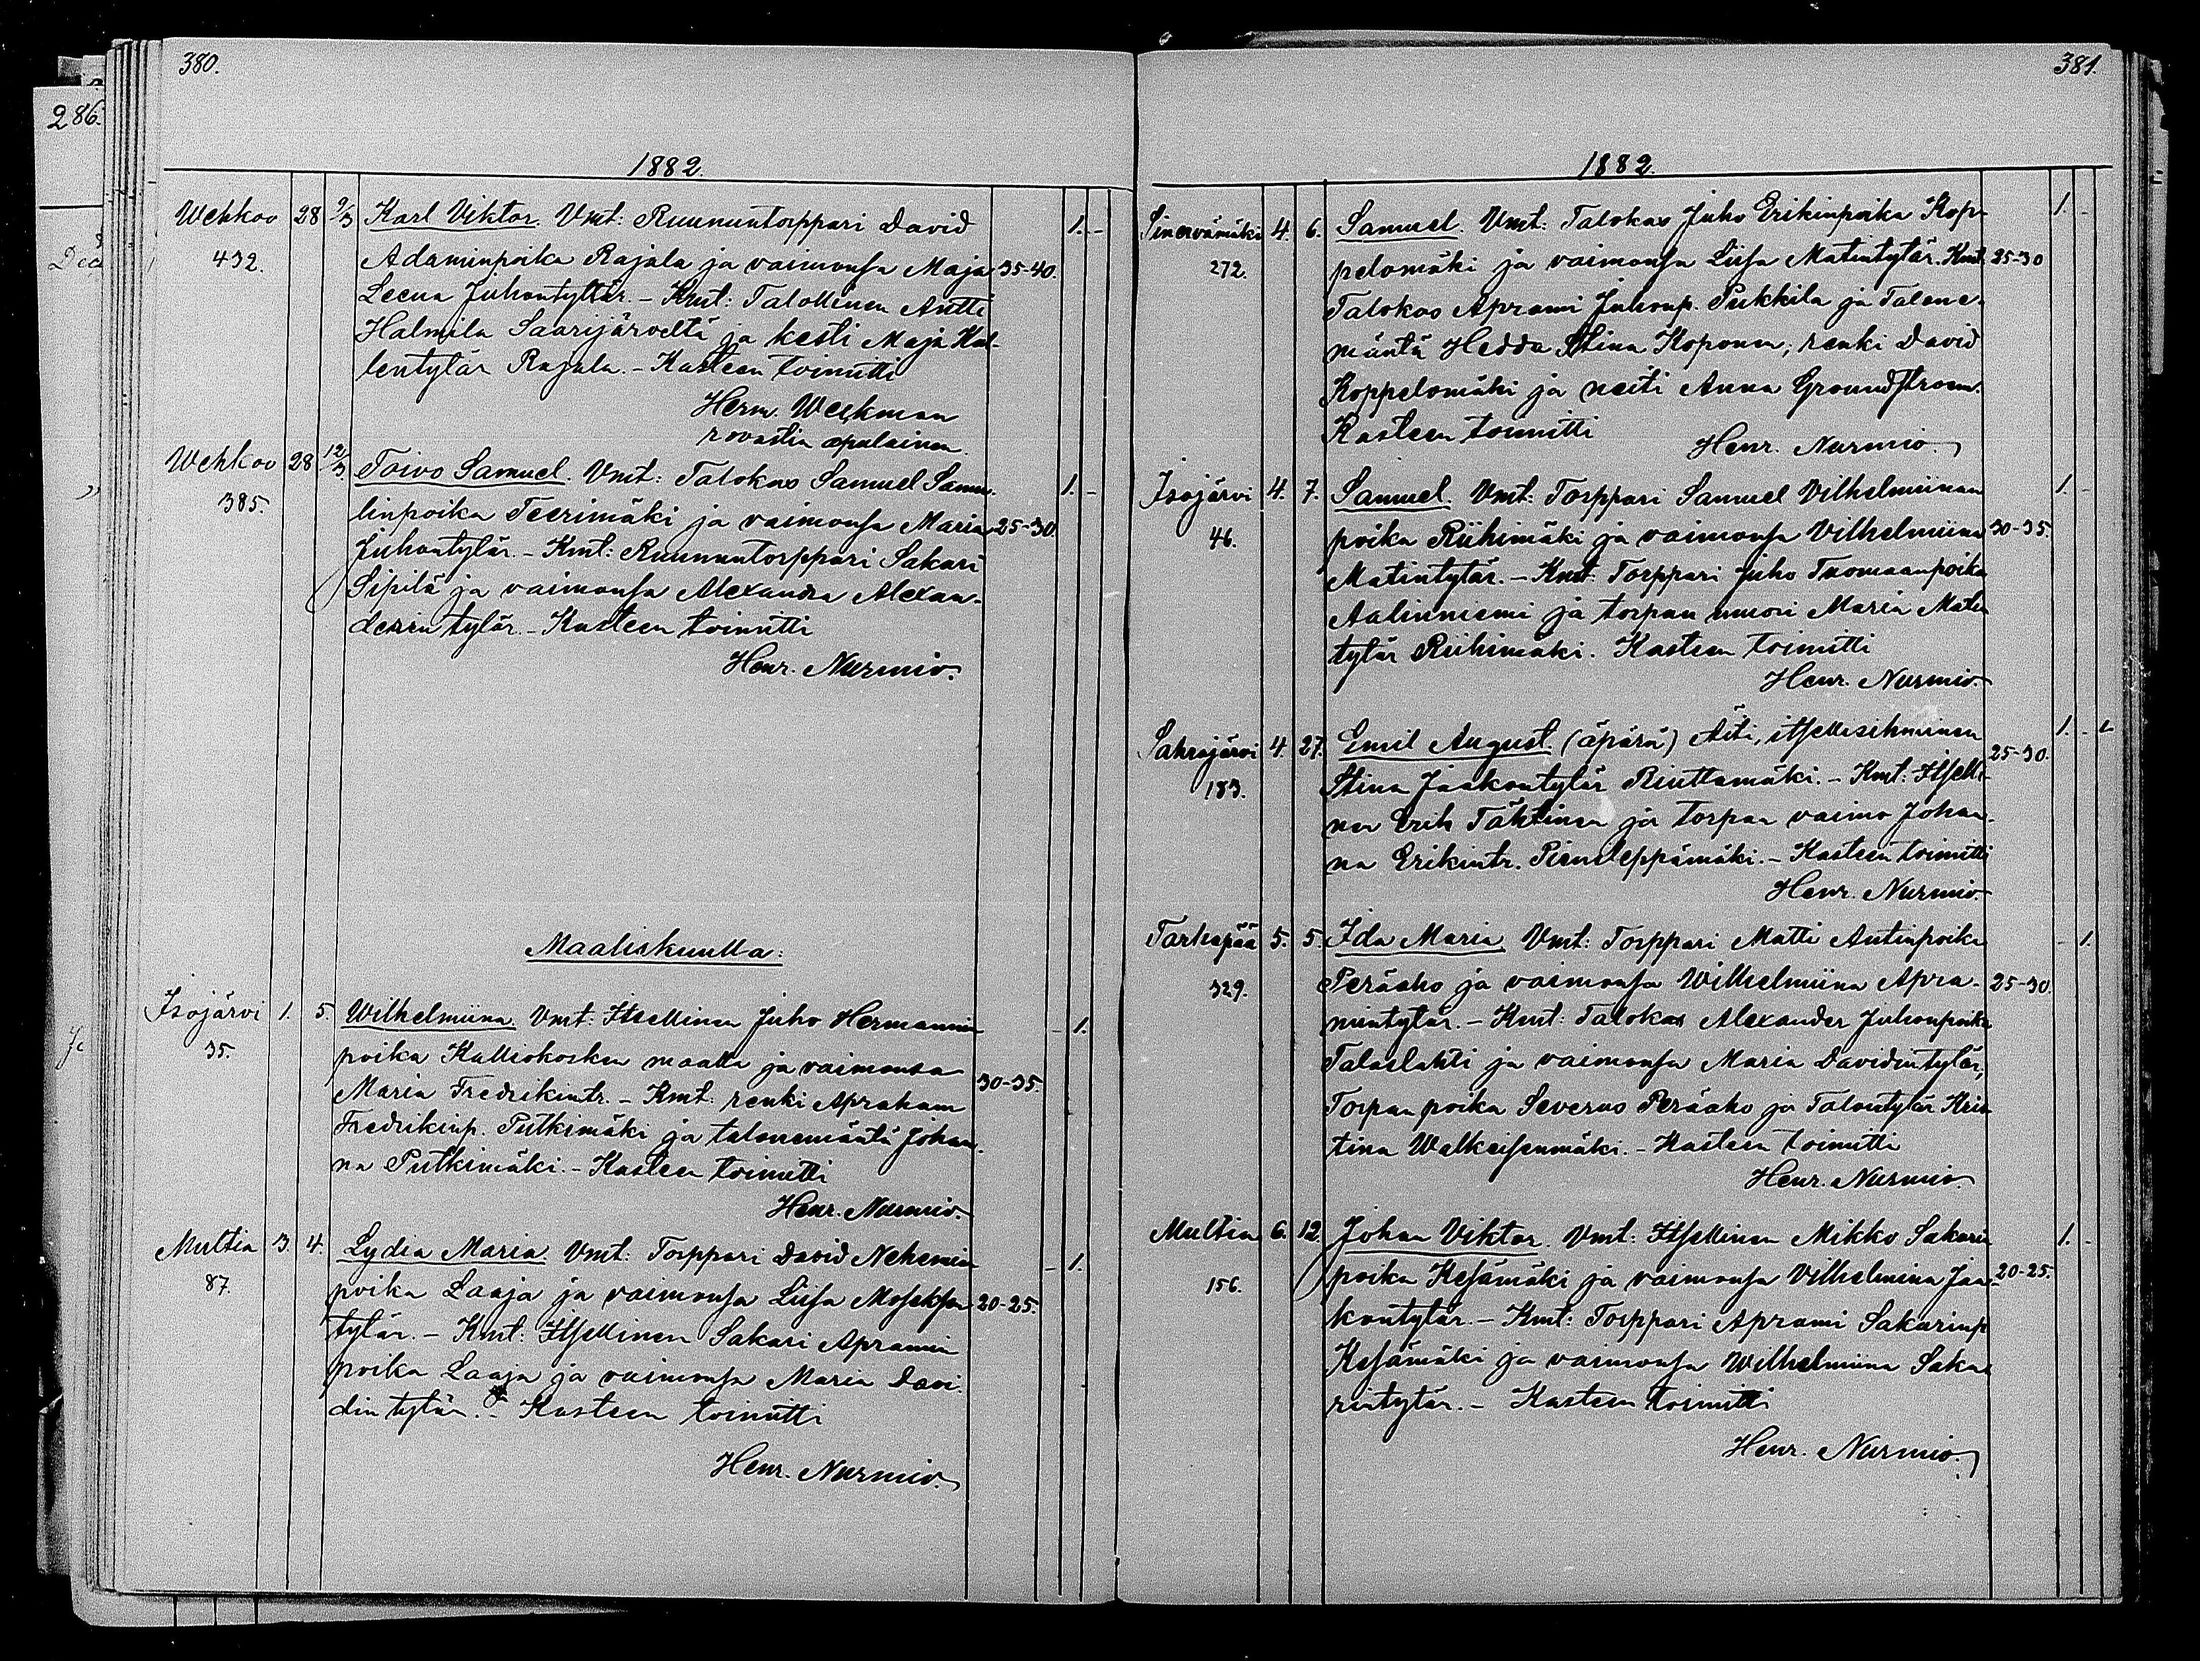 380.
286.
1882.
Wehkoo 28 9/3 Karl Viktor. Vmt: Ruununtorppari David 1. -
432. Adaminpoika Rajala ja vaimonsa Maja 35-40.
Leena Juhontytär. - Kmt: Talollinen Antti
Halmila Saarijärveltä ja kesti Maja Kal-
lentytär Rajala. - Kasteen toimitti
Herm. Weckman
rovastin apulainen.
Wehkoo 28 12/3 Toivo Samuel. Vmt: Talokas Samuel Samu- 1. -
385. linpoika Teerimäki ja vaimonsa Maria 25-30.
Juhontytär. - Kmt: Ruununtorppari Sakari
Sipilä ja vaimonsa Alexandra Alexan-
derin tytär. - Kasteen toimitti
Henr. Nurmio.
Maaliskuulla:
Isojärvi 1. 5. Wilhelmiina. Vmt: Itsellinen Juho Hermannin - 1.
35. poika Kalliokosken maalla ja vaimonsa
Maria Fredrikintr. - Kmt: renki Apraham 30-35.
Fredrikinp. Putkimäki ja talonemäntä Johan-
na Putkimäki. - Kasteen toimitti
Henr. Nurmio.
Multia 3. 4. Lydia Maria. Vmt: Torppari David Nehemian - 1.
87. poika Laaja ja vaimonsa Liisa Moseksen 20-25.
tytär. - Kmt: Itsellinen Sakari Apramin
poika Laaja ja vaimonsa Maria Davi-
din tytär. - Kasteen toimitti
Henr. Nurmio.
381.
1882.
Sinervämäki 4. 6. Samuel. Vmt: Talokas Juho Erikinpoika Kop- 1. -
272. pelomäki ja vaimonsa Liisa Matintytär. Kmt. 25-30
Talokas Aprami Juhonp. Pukkila ja Talone-
mäntä Hedda Stina Koponen, renki David
Koppelomäki ja neiti Anna Groundstroem.
Kasteen toimitti
Henr. Nurmio.
Isojärvi 4. 7. Samuel. Vmt: Torppari Samuel Vilhelminan 1. -
46. poika Riihimäki ja vaimonsa Vilhelmiina 30-35.
Matintytär. - Kmt: Torppari Juho Tuomaanpoika
Aalinniemi ja torpan muori Maria Matin
tytär Riihimäki. Kasteen toimitti
Henr. Nurmio.
Sahrajärvi 4. 27. Emil August. (äpärä) Äiti, itsellisihminen 1. -
183. Stina Jaakontytär Riuttamäki. - Kmt: Itselli- 25-30.
nen Erik Tähtinen ja torpan vaimo Johan-
na Erikintr. Pieni Leppämäki. - Kasteen toimitti
Henr. Nurmio.
Tarhapää 5. 5. Ida Maria. Vmt: Torppari Matti Antinpoika - 1.
329. Peräaho ja vaimonsa Wilhelmiina Apra- 25-30.
mintytär. - Kmt: Talokas Alexander Juhonpoika
Talaslahti ja vaimonsa Maria Davidintytär,
Torpan poika Severus Peräaho ja Talontytär Kris
tina Walkeisenmäki. - Kasteen toimitti
Henr. Nurmio.
Multia 6. 12. Johan Viktor. Vmt: Itsellinen Mikko Sakarin 1. -
156. poika Kesämäki ja vaimonsa Vilhelmina Jaa- 20-25.
kontytär. - Kmt: Torppari Aprami Sakarinp.
Kesämäki ja vaimonsa Wilhelmiina Saka-
rintytär. - Kasteen toimitti
Henr. Nurmio.